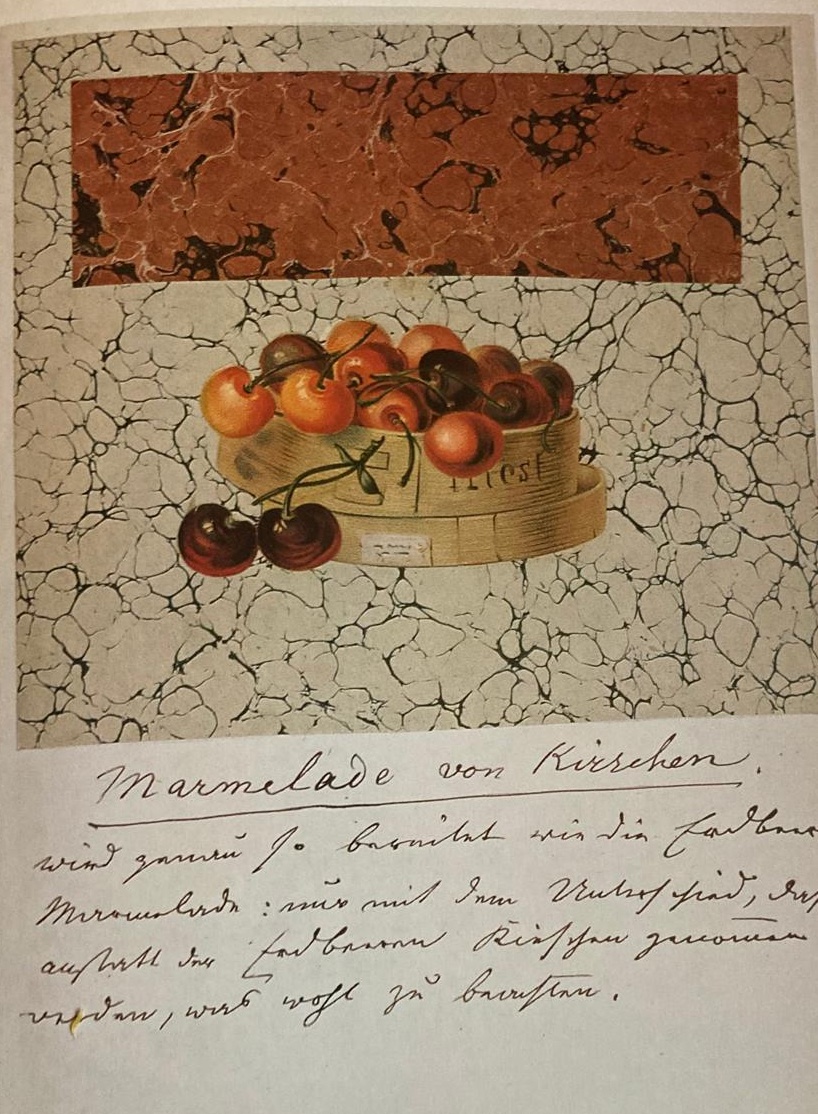 Marmelade von Kirschen.
wird genau so bereitet wie die Erdbeer
Marmelade: nur mit dem Unterschied, daß
anstatt der Erdbeeren Kirschen genom̅en
werden, was wohl zu beachten.